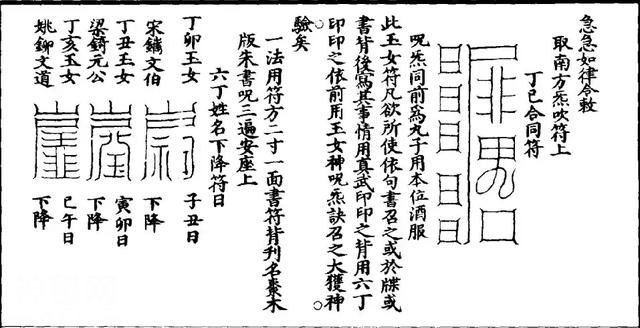 急急如律令敕
取南方炁吹符上
丁巳合同符
呪炁同前為丸子用本位酒服
此玉女符凡欲所使依句書召之或於牒或
書背後寫其事情用真武印印之背用六丁
印印之依前用玉女神呪炁訣召之大獲神
驗矣
一法用符方二寸一面書符背刊名棗木
版朱書呪三遍安座上
六丁姓名下降符日
丁卯玉女
宋鐵文伯
子丑日
下降
丁丑玉女
梁錡元公
寅卯日
下降
丁亥玉女
姚鉚文道
巳午日
下降